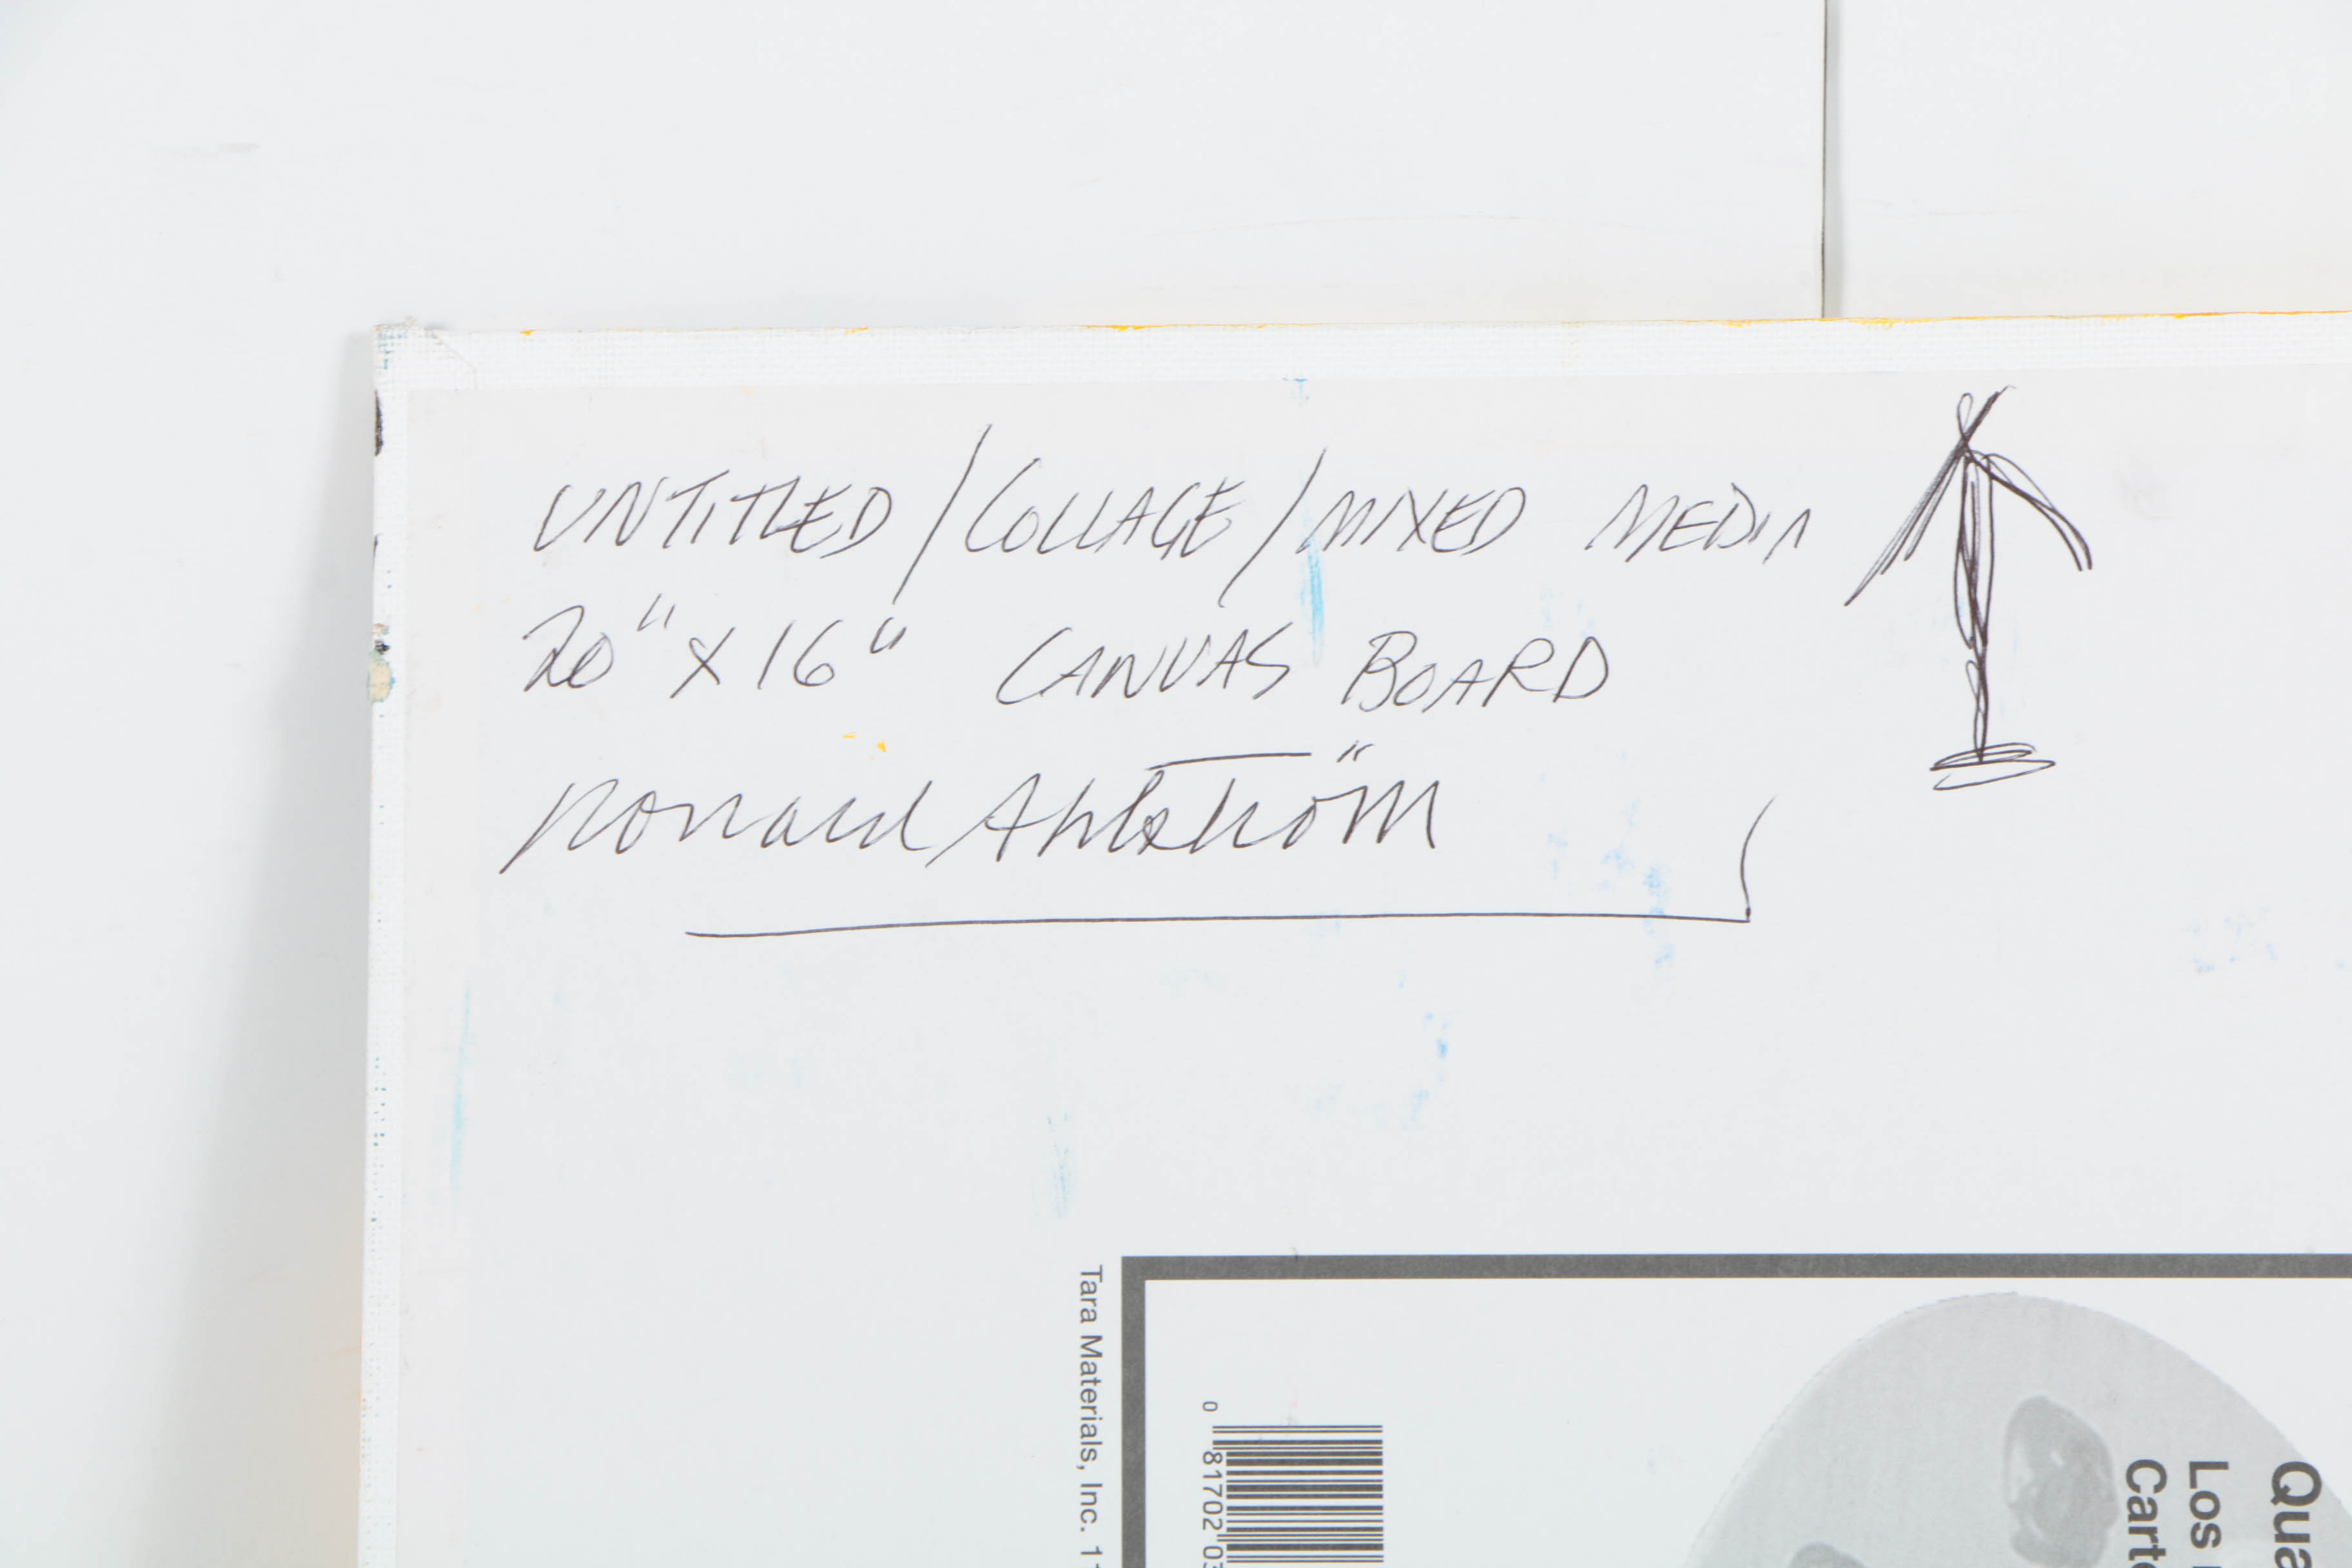 UNTITLED/COLLAGE/MIXED MEDIA
20" X 16" CANVAS BOARD
Ronald Ahlström
Tara Materials, Inc. 11
0 81702 03
Qua
Los
Carte